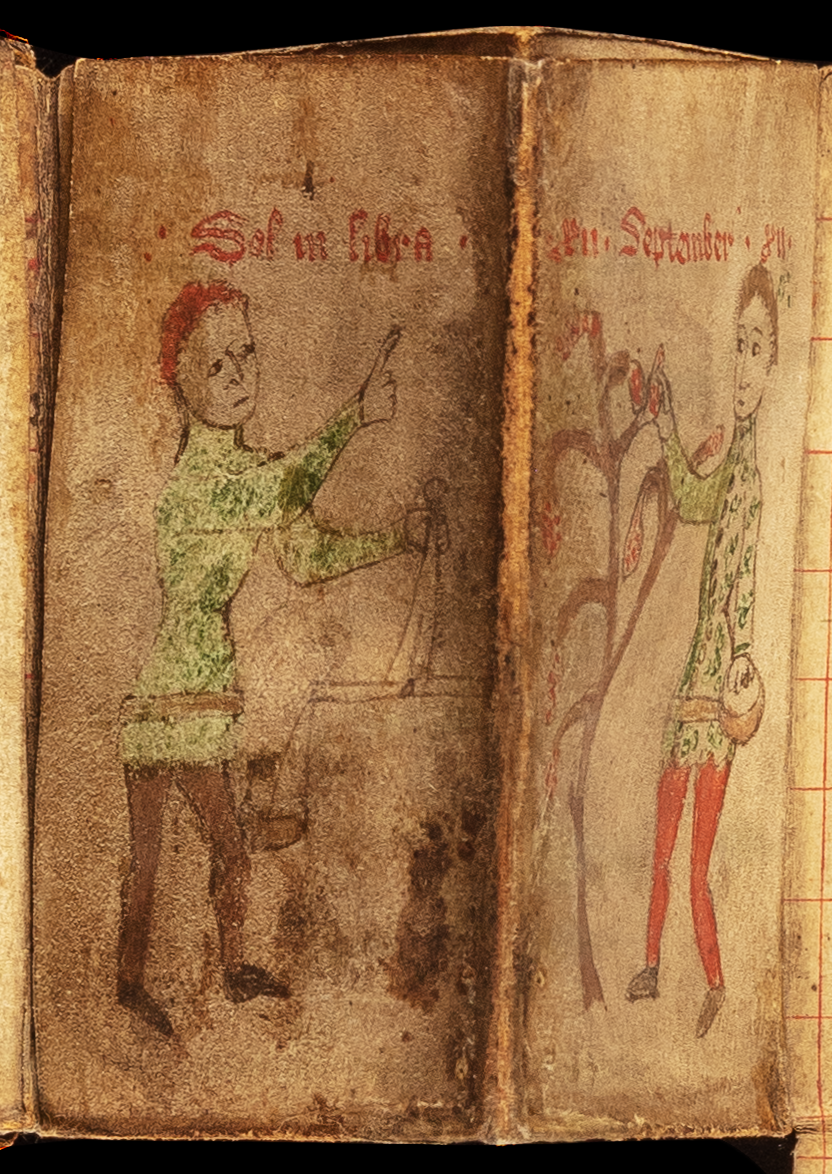 Sol in libra
September